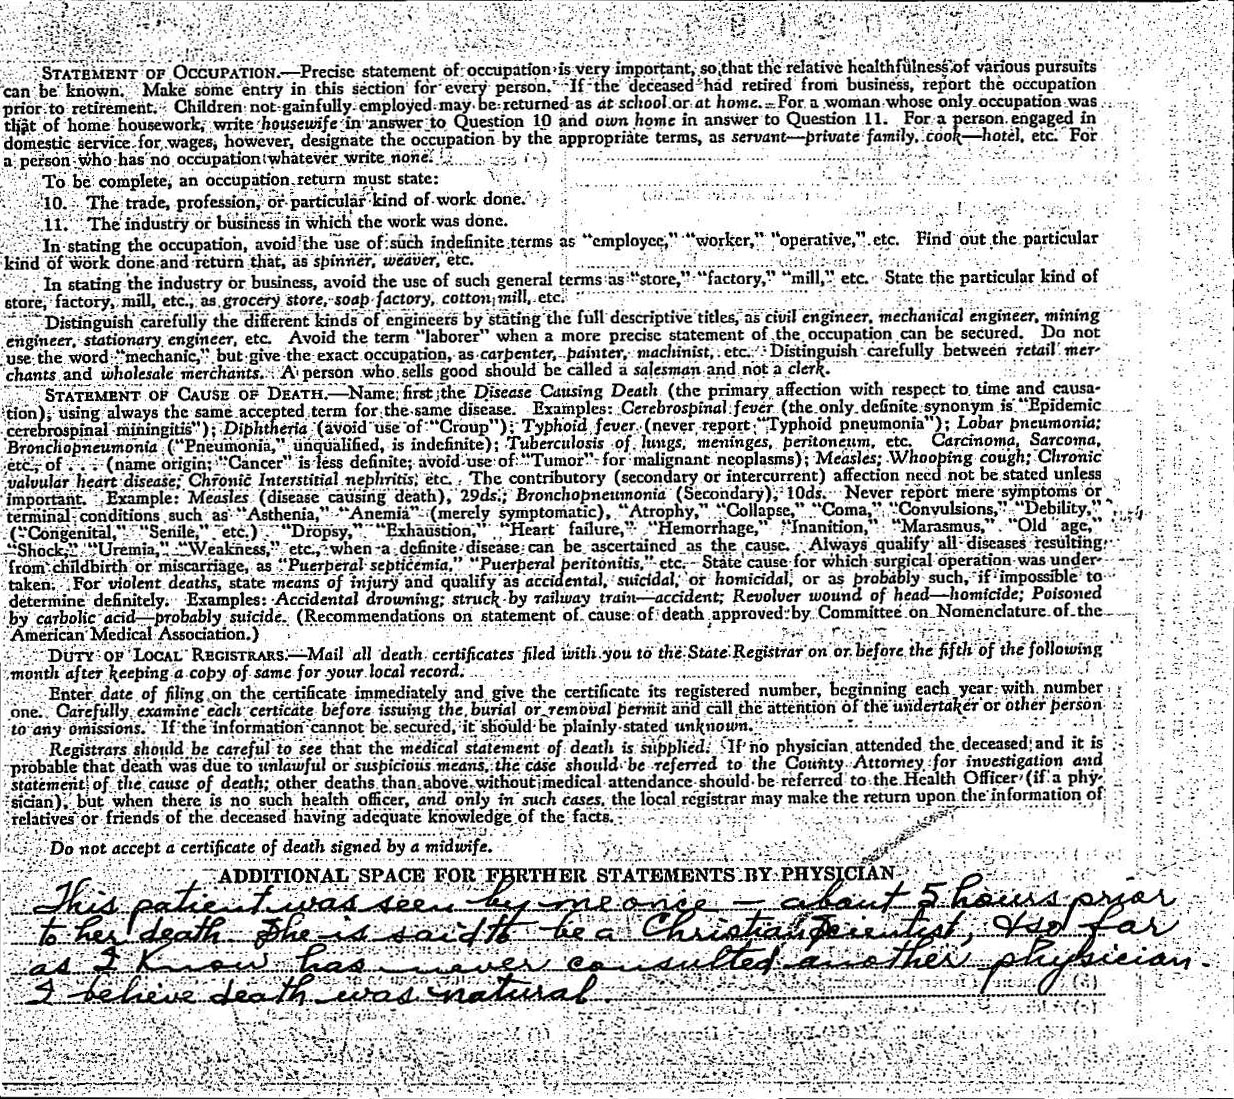 STATEMENT OF OCCUPATION.—Precise statement of occupation is very important, so that the relative healthfulness of various pursuits
can be known. Make some entry in this section for every person. If the deceased had retired from business, report the occupation
prior to retirement. Children not gainfully employed may be returned as at school or at home. For a woman whose only occupation was
that of home housework, write housewife in answer to Question 10 and own home in answer to Question 11. For a person engaged in
domestic service for wages, however, designate the occupation by the appropriate terms, as servant—private family, cook—hotel, etc. For
a person who has no occupation whatever write none.
To be complete, an occupation return must state:
10. The trade, profession, or particular kind of work done.
11. The industry or business in which the work was done.
In stating the occupation, avoid the use of such indefinite terms as "employee," "worker," "operative," etc. Find out the particular
kind of work done and return that, as spinner, weaver, etc.
In stating the industry or business, avoid the use of such general terms as "store," "factory," "mill," etc. State the particular kind of
store, factory, mill, etc., as grocery store, soap factory, cotton mill, etc.
Distinguish carefully the different kinds of engineers by stating the full descriptive titles, as civil engineer, mechanical engineer, mining
engineer, stationary engineer, etc. Avoid the term "laborer" when a more precise statement of the occupation can be secured. Do not
use the word "mechanic," but give the exact occupation, as carpenter, painter, machinist, etc. Distinguish carefully between retail mer-
chants and wholesale merchants. A person who sells good should be called a salesman and not a clerk.
STATEMENT OF CAUSE OF DEATH.—Name first the Disease Causing Death (the primary affection with respect to time and causa-
tion), using always the same accepted term for the same disease. Examples: Cerebrospinal fever (the only definite synonym is "Epidemic
cerebrospinal miningitis"); Diphtheria (avoid use of "Croup"); Typhoid fever (never report "Typhoid pneumonia"); Lobar pneumonia;
Bronchopneumonia ("Pneumonia," unqualified, is indefinite); Tuberculosis of lungs, meninges, peritoneum, etc. Carcinoma, Sarcoma,
etc., of . . . (name origin; "Cancer" is less definite; avoid use of "Tumor" for malignant neoplasms); Measles; Whooping cough; Chronic
valvular heart disease; Chronic Interstitial nephritis; etc. The contributory (secondary or intercurrent) affection need not be stated unless
important. Example: Measles (disease causing death), 29ds.; Bronchopneumonia (Secondary), 10ds. Never report mere symptoms or
terminal conditions such as "Asthenia," "Anemia" (merely symptomatic), "Atrophy," "Collapse," "Coma," "Convulsions," "Debility,"
("Congenital," "Senile," etc.) "Dropsy," "Exhaustion," "Heart failure," "Hemorrhage," "Inanition," "Marasmus," "Old age,"
"Shock," "Uremia," "Weakness," etc., when a definite disease can be ascertained as the cause. Always qualify all diseases resulting
from childbirth or miscarriage, as "Puerperal septicemia," "Puerperal peritonitis," etc. State cause for which surgical operation was under-
taken. For violent deaths, state means of injury and qualify as accidental, suicidal, or homicidal, or as probably such, if impossible to
determine definitely. Examples: Accidental drowning; struck by railway train—accident; Revolver wound of head—homicide; Poisoned
by carbolic acid—probably suicide. (Recommendations on statement of cause of death approved by Committee on Nomenclature of the
American Medical Association.)
DUTY OF LOCAL REGISTRARS.—Mail all death certificates filed with you to the State Registrar on or before the fifth of the following
month after keeping a copy of same for your local record.
Enter date of filing on the certificate immediately and give the certificate its registered number, beginning each year with number
one. Carefully examine each certicate before issuing the burial or removal permit and call the attention of the undertaker or other person
to any omissions. If the information cannot be secured, it should be plainly stated unknown.
Registrars should be careful to see that the medical statement of death is supplied. If no physician attended the deceased and it is
probable that death was due to unlawful or suspicious means, the case should be referred to the County Attorney for investigation and
statement of the cause of death; other deaths than above without medical attendance should be referred to the Health Officer (if a phy-
sician), but when there is no such health officer, and only in such cases, the local registrar may make the return upon the information of
relatives or friends of the deceased having adequate knowledge of the facts.
Do not accept a certificate of death signed by a midwife.
ADDITIONAL SPACE FOR FURTHER STATEMENTS BY PHYSICIAN
This patient was seen by me once – about 5 hours prior
to her death. She is said to be a Christian Scientist, & so far
as I know has never consulted another physician.
I believe death was natural.